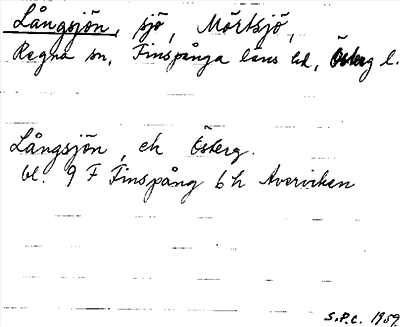 Långsjön, sjö, Mörtsjö,
Regna sn, Finspånga läns hd, Österg l.
Långsjön, ek Österg.
bl. 9 F Finspång 6 h Averviken
S.P.C. 1959